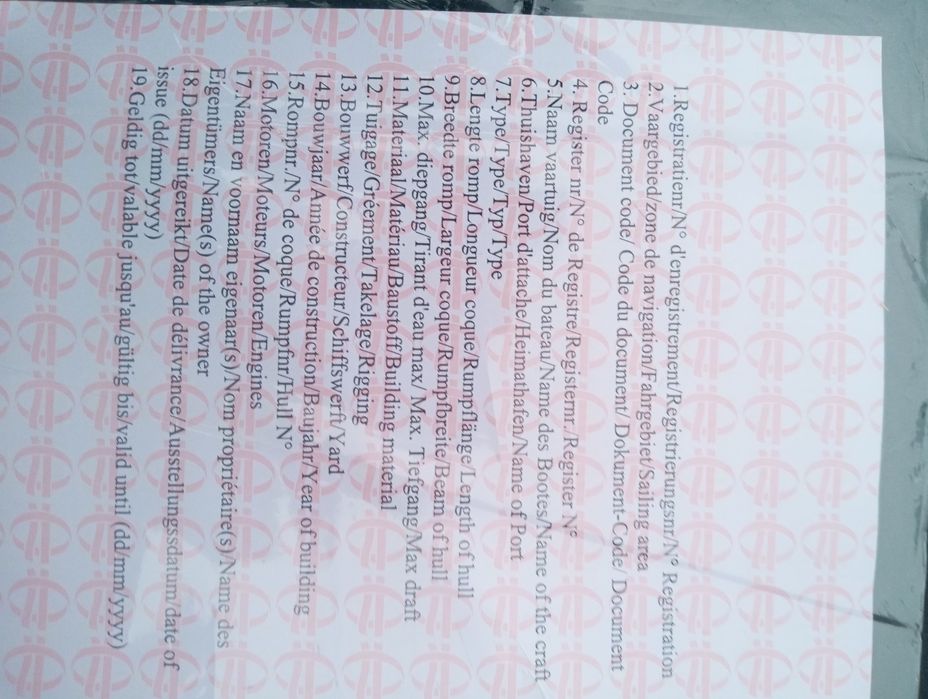 1.Registratienr/N° d'enregistrement/Registrierungsnr/N° Registration
2.Vaargebied/zone de navigation/Fahrgebiet/Sailing area
3. Document code/ Code du document/ Dokument-Code/ Document
Code
4. Register nr/N° de Registre/Registernr./Register N°
5.Naam vaartuig/Nom du bateau/Name des Bootes/Name of the craft
6.Thuishaven/Port d'attache/Heimathafen/Name of Port
7.Type/Type/Typ/Type
8.Lengte romp/Longueur coque/Rumpflänge/Length of hull
9.Breedte romp/Largeur coque/Rumpfbreite/Beam of hull
10.Max. diepgang/Tirant d'eau max/ Max. Tiefgang/Max draft
11.Materiaal/Matériau/Baustoff/Building material
12.Tuigage/Gréement/Takelage/Rigging
13.Bouwwerf/Constructeur/Schiffswerft/Yard
14.Bouwjaar/Année de construction/Baujahr/Year of building
15.Rompnr./N° de coque/Rumpfnr/Hull N°
16.Motoren/Moteurs/Motoren/Engines
17.Naam en voornaam eigenaar(s)/Nom propriétaire(s)/Name des
Eigentünners/Name(s) of the owner
18.Datum uitgereikt/Date de délivrance/Ausstellungssdatum/date of
issue (dd/mm/yyyy)
19.Geldig tot/valable jusqu'au/gültig bis/valid until (dd/mm/yyyy)